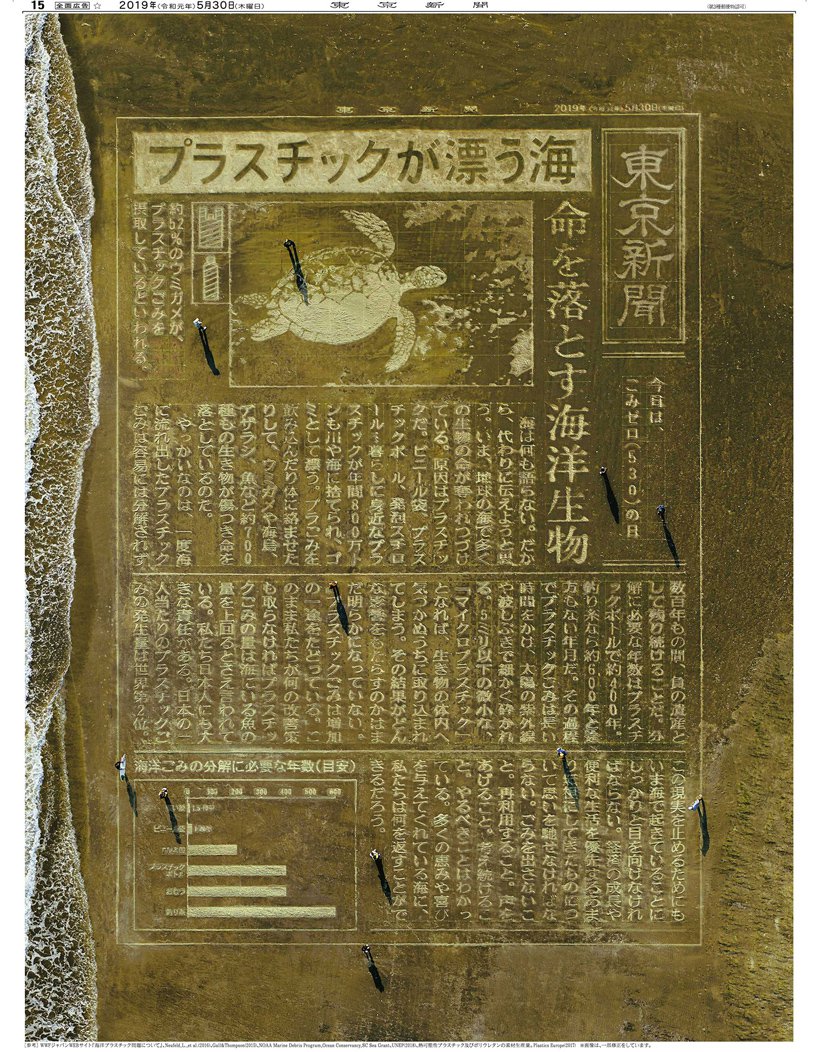 15 全面広告 ☆ 2019年(令和元年)5月30日(木曜日) 東京新聞 (第3種郵便物認可)
東京新聞 2019年(令和元年)5月30日(木曜日)
東京新聞
プラスチックが漂う海
命を落とす海洋生物
今日は、
ごみゼロ(530)の日
約52%のウミガメが、
プラスチックごみを
摂取しているといわれる。
海は何も語らない。だか
ら、代わりに伝えようと思
う。いま、地球の海で多く
の生物の命が奪われつづけ
ている。原因はプラスチッ
クだ。ビニール袋、プラス
チックボトル、発泡スチロ
ール…暮らしに身近なプラ
スチックが年間800万ト
ンも川や海に捨てられ、ゴ
ミとして漂う。プラごみを
飲み込んだり体に絡ませた
りして、ウミガメや海鳥、
アザラシ、魚など約700
種もの生き物が傷つき命を
落としているのだ。
やっかいなのは、一度海
に流れ出したプラスチック
ごみは容易には分解されず
数百年もの間、負の遺産と
して残り続けることだ。分
解に必要な年数はプラスチ
ックボトルで約400年。
釣り糸なら約600年と途
方もない年月だ。その過程
でプラスチックごみは長い
時間をかけ、太陽の紫外線
や波しぶきで細かく砕かれ
る。5ミリ以下の微小な、
「マイクロプラスチック」
となれば、生き物の体内へ
気づかぬうちに取り込まれ
てしまう。その結果がどん
な影響をもたらすのかはま
だ明らかになっていない。
プラスチックごみは増加
の一途をたどっている。こ
のまま私たちが何の改善策
も取らなければプラスチッ
クごみの量は海にいる魚の
量を上回るとさえ言われて
いる。私たち日本人にも大
きな責任がある。日本の一
人当たりのプラスチックご
みの発生量は世界第2位。
この現実を止めるためにも
いま海で起きていることに
しっかりと目を向けなけれ
ばならない。経済の成長や
便利な生活を優先するあま
り犠牲にしてきたものにつ
いて思いを馳せなければな
らない。ごみを出さないこ
と。再利用すること。声を
あげること。考え続けるこ
と。やるべきことはわかっ
ている。多くの恵みや喜び
を与えてくれている海に、
私たちは何を返すことがで
きるだろう。
海洋ごみの分解に必要な年数(目安)
0 100 200 300 400 500 600
ビニール袋
プラスチック
ボトル
おむつ
釣り糸
[参考] WWFジャパンWEBサイト「海洋プラスチック問題について」、Neufeld,L.,et al.(2016)、Gall&Thompson(2015)、NOAA Marine Debris Program,Ocean Conservancy,SC Sea Grant、UNEP(2018)、熱可塑性プラスチック及びポリウレタンの素材生産量。Plastics Europe(2017) ※画像は、一部修正をしています。